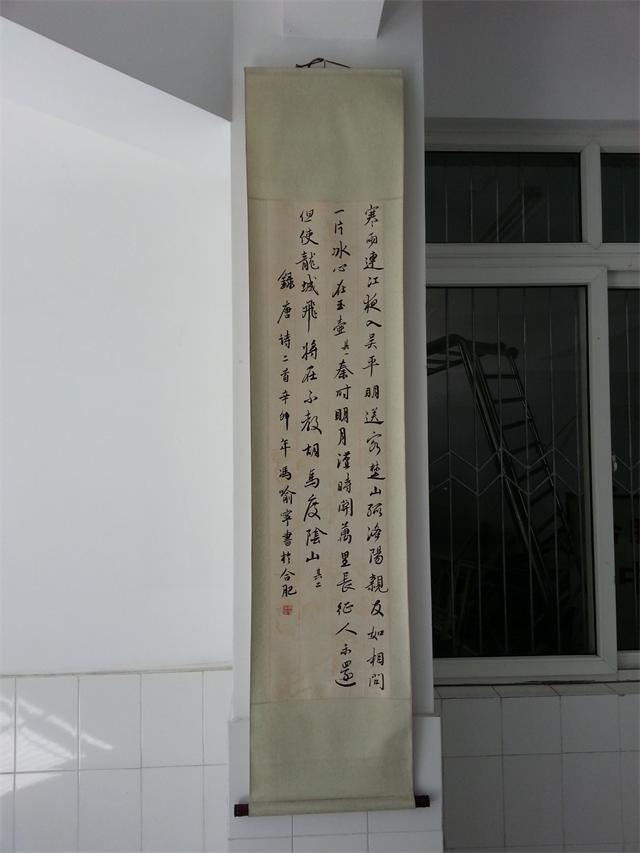 寒雨連江夜入吴平明送客楚山孤洛陽親友如相問
一片冰心在玉壺其一秦时明月漢時關萬里長征人未還
但使龍城飛將在不教胡馬度陰山其二
錄唐诗二首辛卯年冯喻寧書於合肥